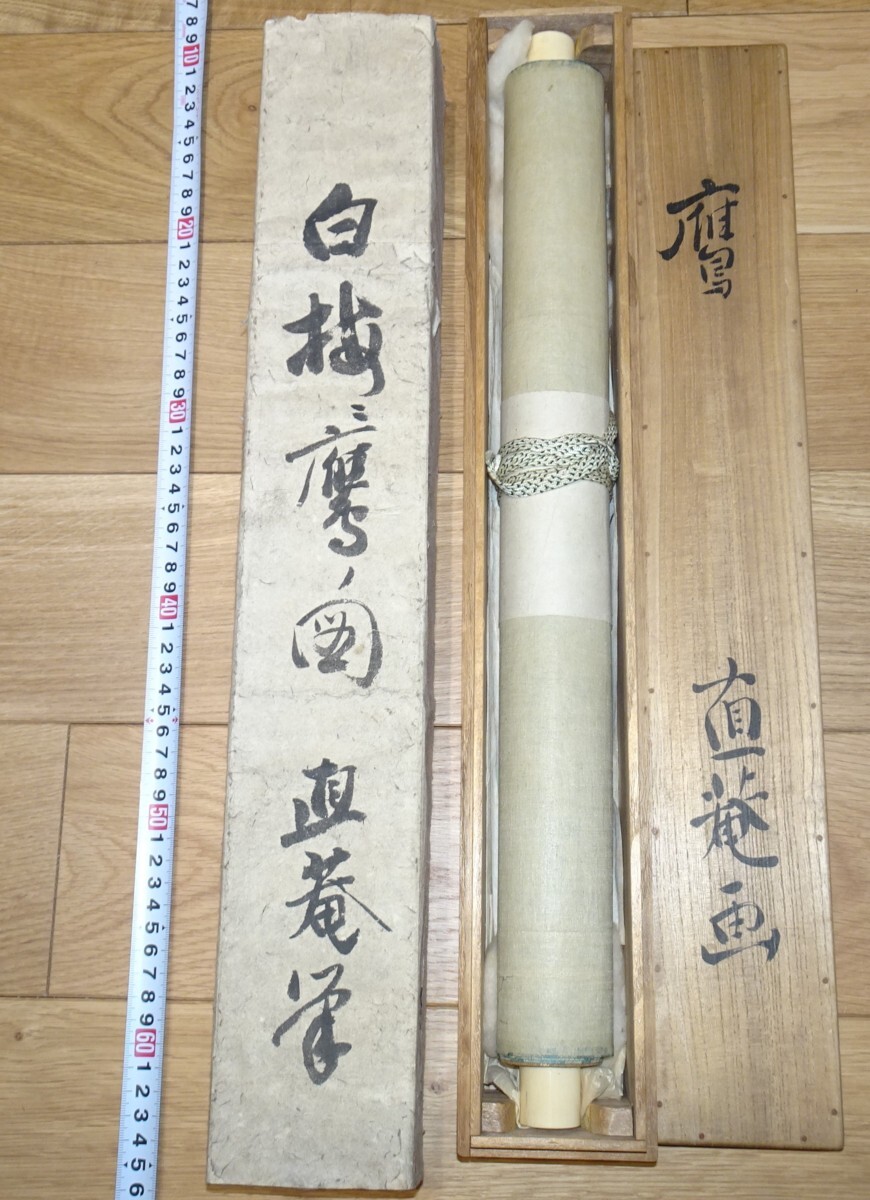 白梅ニ鷹ノ図 直菴筆
鷹 直菴画
7 8 9 10 1 2 3 4 5 6 7 8 9 20 1 2 3 4 5 6 7 8 9 30 1 2 3 4 5 6 7 8 9 40 1 2 3 4 5 6 7 8 9 50 1 2 3 4 5 6 7 8 9 60 1 2 3 4 5 6